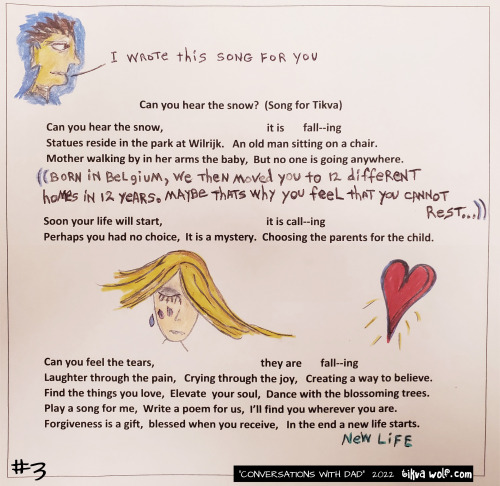 I WROTE THIS SONG FOR YOU
Can you hear the snow? (Song for Tikva)
Can you hear the snow, it is fall--ing
Statues reside in the park at Wilrijk. An old man sitting on a chair.
Mother walking by in her arms the baby, But no one is going anywhere.
((BORN IN BELGIUM, WE THEN MOVED YOU TO 12 DIFFERENT
HOMES IN 12 YEARS. MAYBE THATS WHY YOU FEEL THAT YOU CANNOT
REST...))
Soon your life will start, it is call--ing
Perhaps you had no choice, It is a mystery. Choosing the parents for the child.
Can you feel the tears, they are fall--ing
Laughter through the pain, Crying through the joy, Creating a way to believe.
Find the things you love, Elevate your soul, Dance with the blossoming trees.
Play a song for me, Write a poem for us, I'll find you wherever you are.
Forgiveness is a gift, blessed when you receive, In the end a new life starts.
NEW LIFE
#3
"CONVERSATIONS WITH DAD" 2022 tikva wolf.com